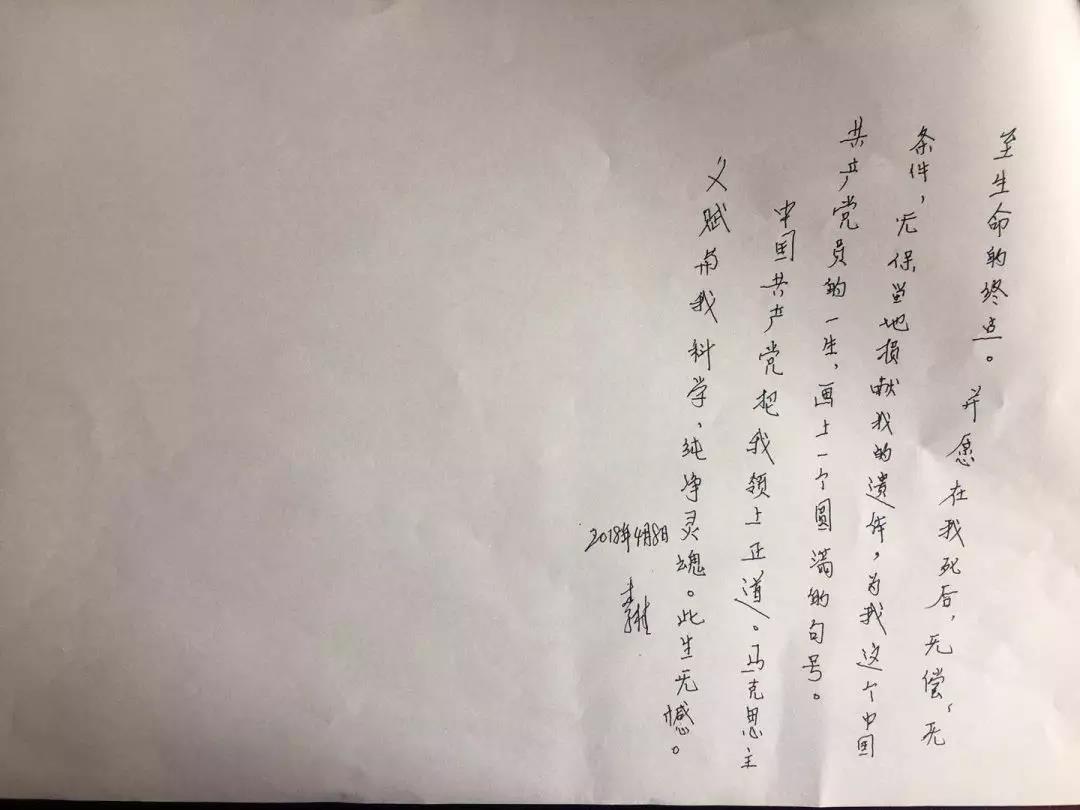 至生命的终点。并愿在我死后，无偿、无
条件，无保留地损献我的遗体，为我这个中国
共产党员的一生，画上一个圆满的句号。
中国共产党把我领上正道。马克思主
义赋与我科学、纯净灵魂。此生无憾。
2018年4月8日